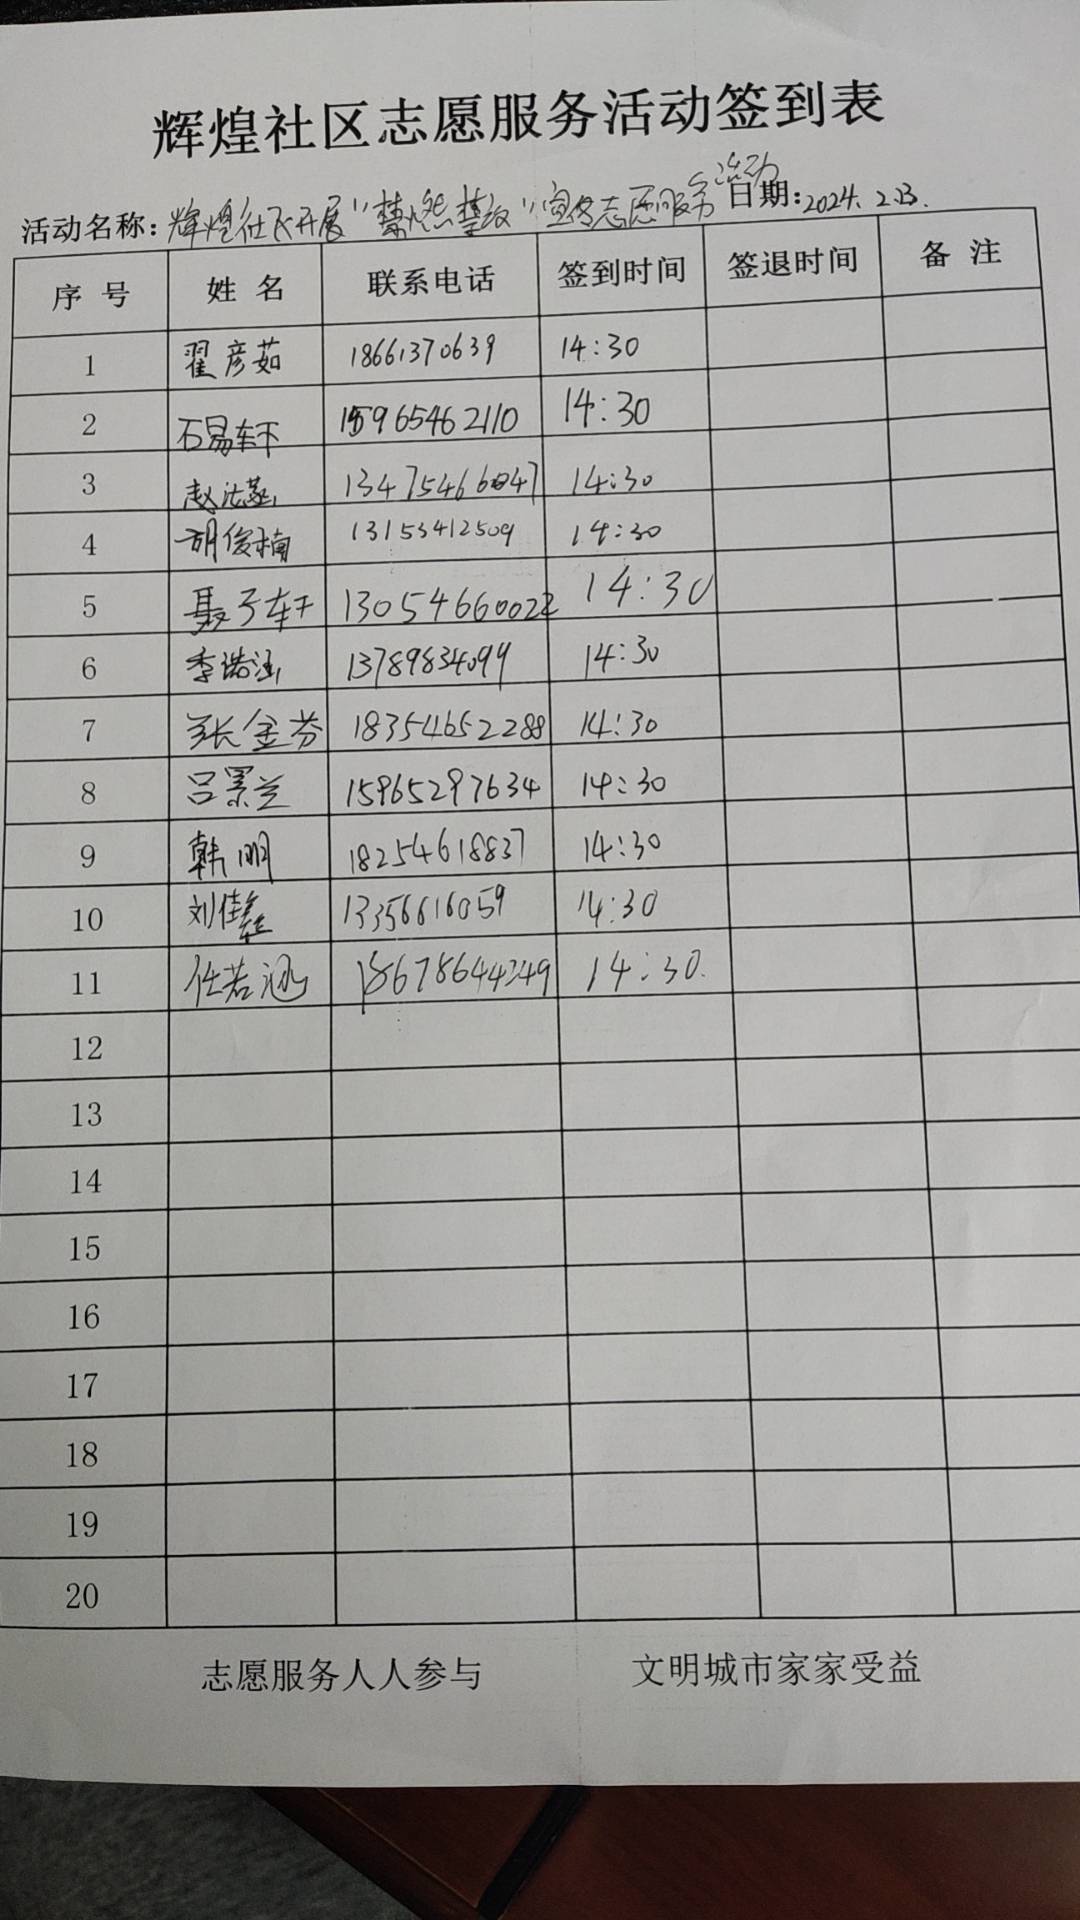 辉煌社区志愿服务活动签到表
活动名称：辉煌社区开展“禁燃禁放”宣传志愿服务活动 日期：2024.2.23.
序号 姓名 联系电话 签到时间 签退时间 备注
1 翟彦茹 18661370639 14:30
2 石易轩 15965462110 14:30
3 赵 13475466047 14:30
4 胡俊楠 13153412509 14:30
5 聂子轩 13054660022 14:30
6 季诺涵 13789834099 14:30
7 张金芬 18354652288 14:30
8 吕景兰 15965297634 14:30
9 韩明 18254618837 14:30
10 刘佳鑫 13356616059 14:30
11 任若涵 18678644249 14:30.
12
13
14
15
16
17
18
19
20
志愿服务人人参与 文明城市家家受益